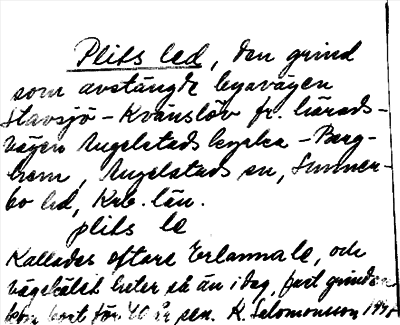 Plits led, den grind
som avstängde byavägen
Stavsjö - Kvänslöv fr. härads-
vägen Angelstads kyrka - Berg-
hem, Angelstads sn, Sunner-
bo hd, Krb. län.
plits le
Kallades oftare Erlannale, och
vägskälet heter så än i dag, fast grinden
kom bort för 40 år sen. K. Salomonsson